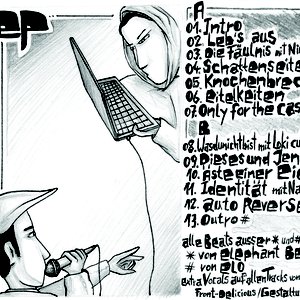 ep
A
01. Intro
02. Leb's aus
03. Die Fäulnis mit Ni
04. Schattenseite
05. Knochenbrec
06. Eitelkeiten
07. Only for the cas
B
08. Wasdunichtbist mit Loki cu
09. Dieses und Jen
10. Äste einer Eic
11. Identität mit Na
12. auto Reverse
13. Outro #
alle Beats ausser * und #
* von elephant Be
# von
extra Vocals auf allen Tracks von
Front-Delicious/Gestaltu